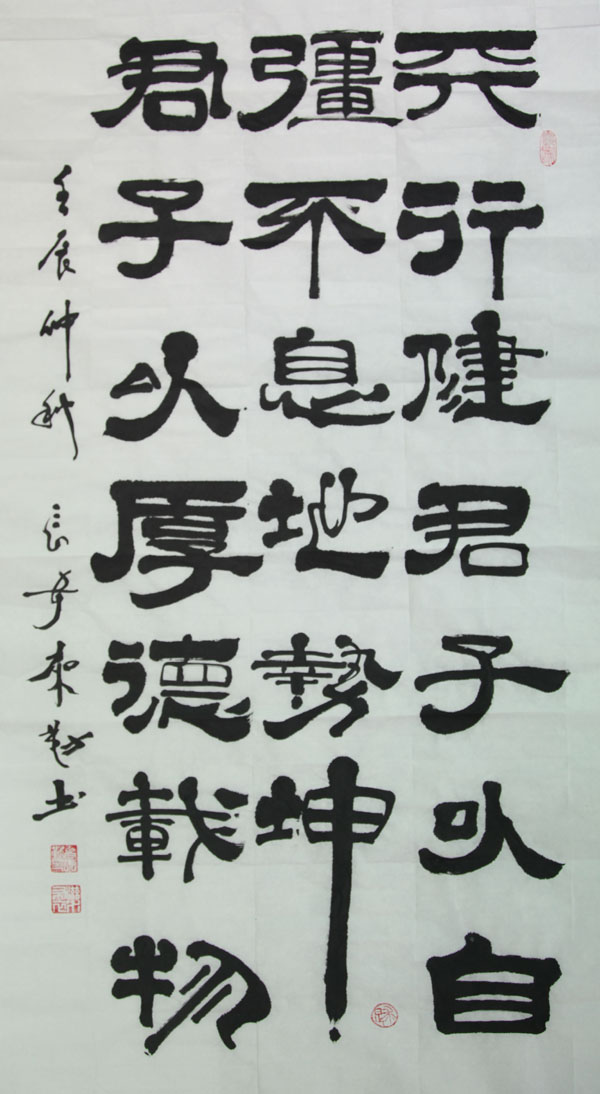 天行健君子以自
彊不息地勢坤
君子以厚德載物
壬辰仲秋 长安
书